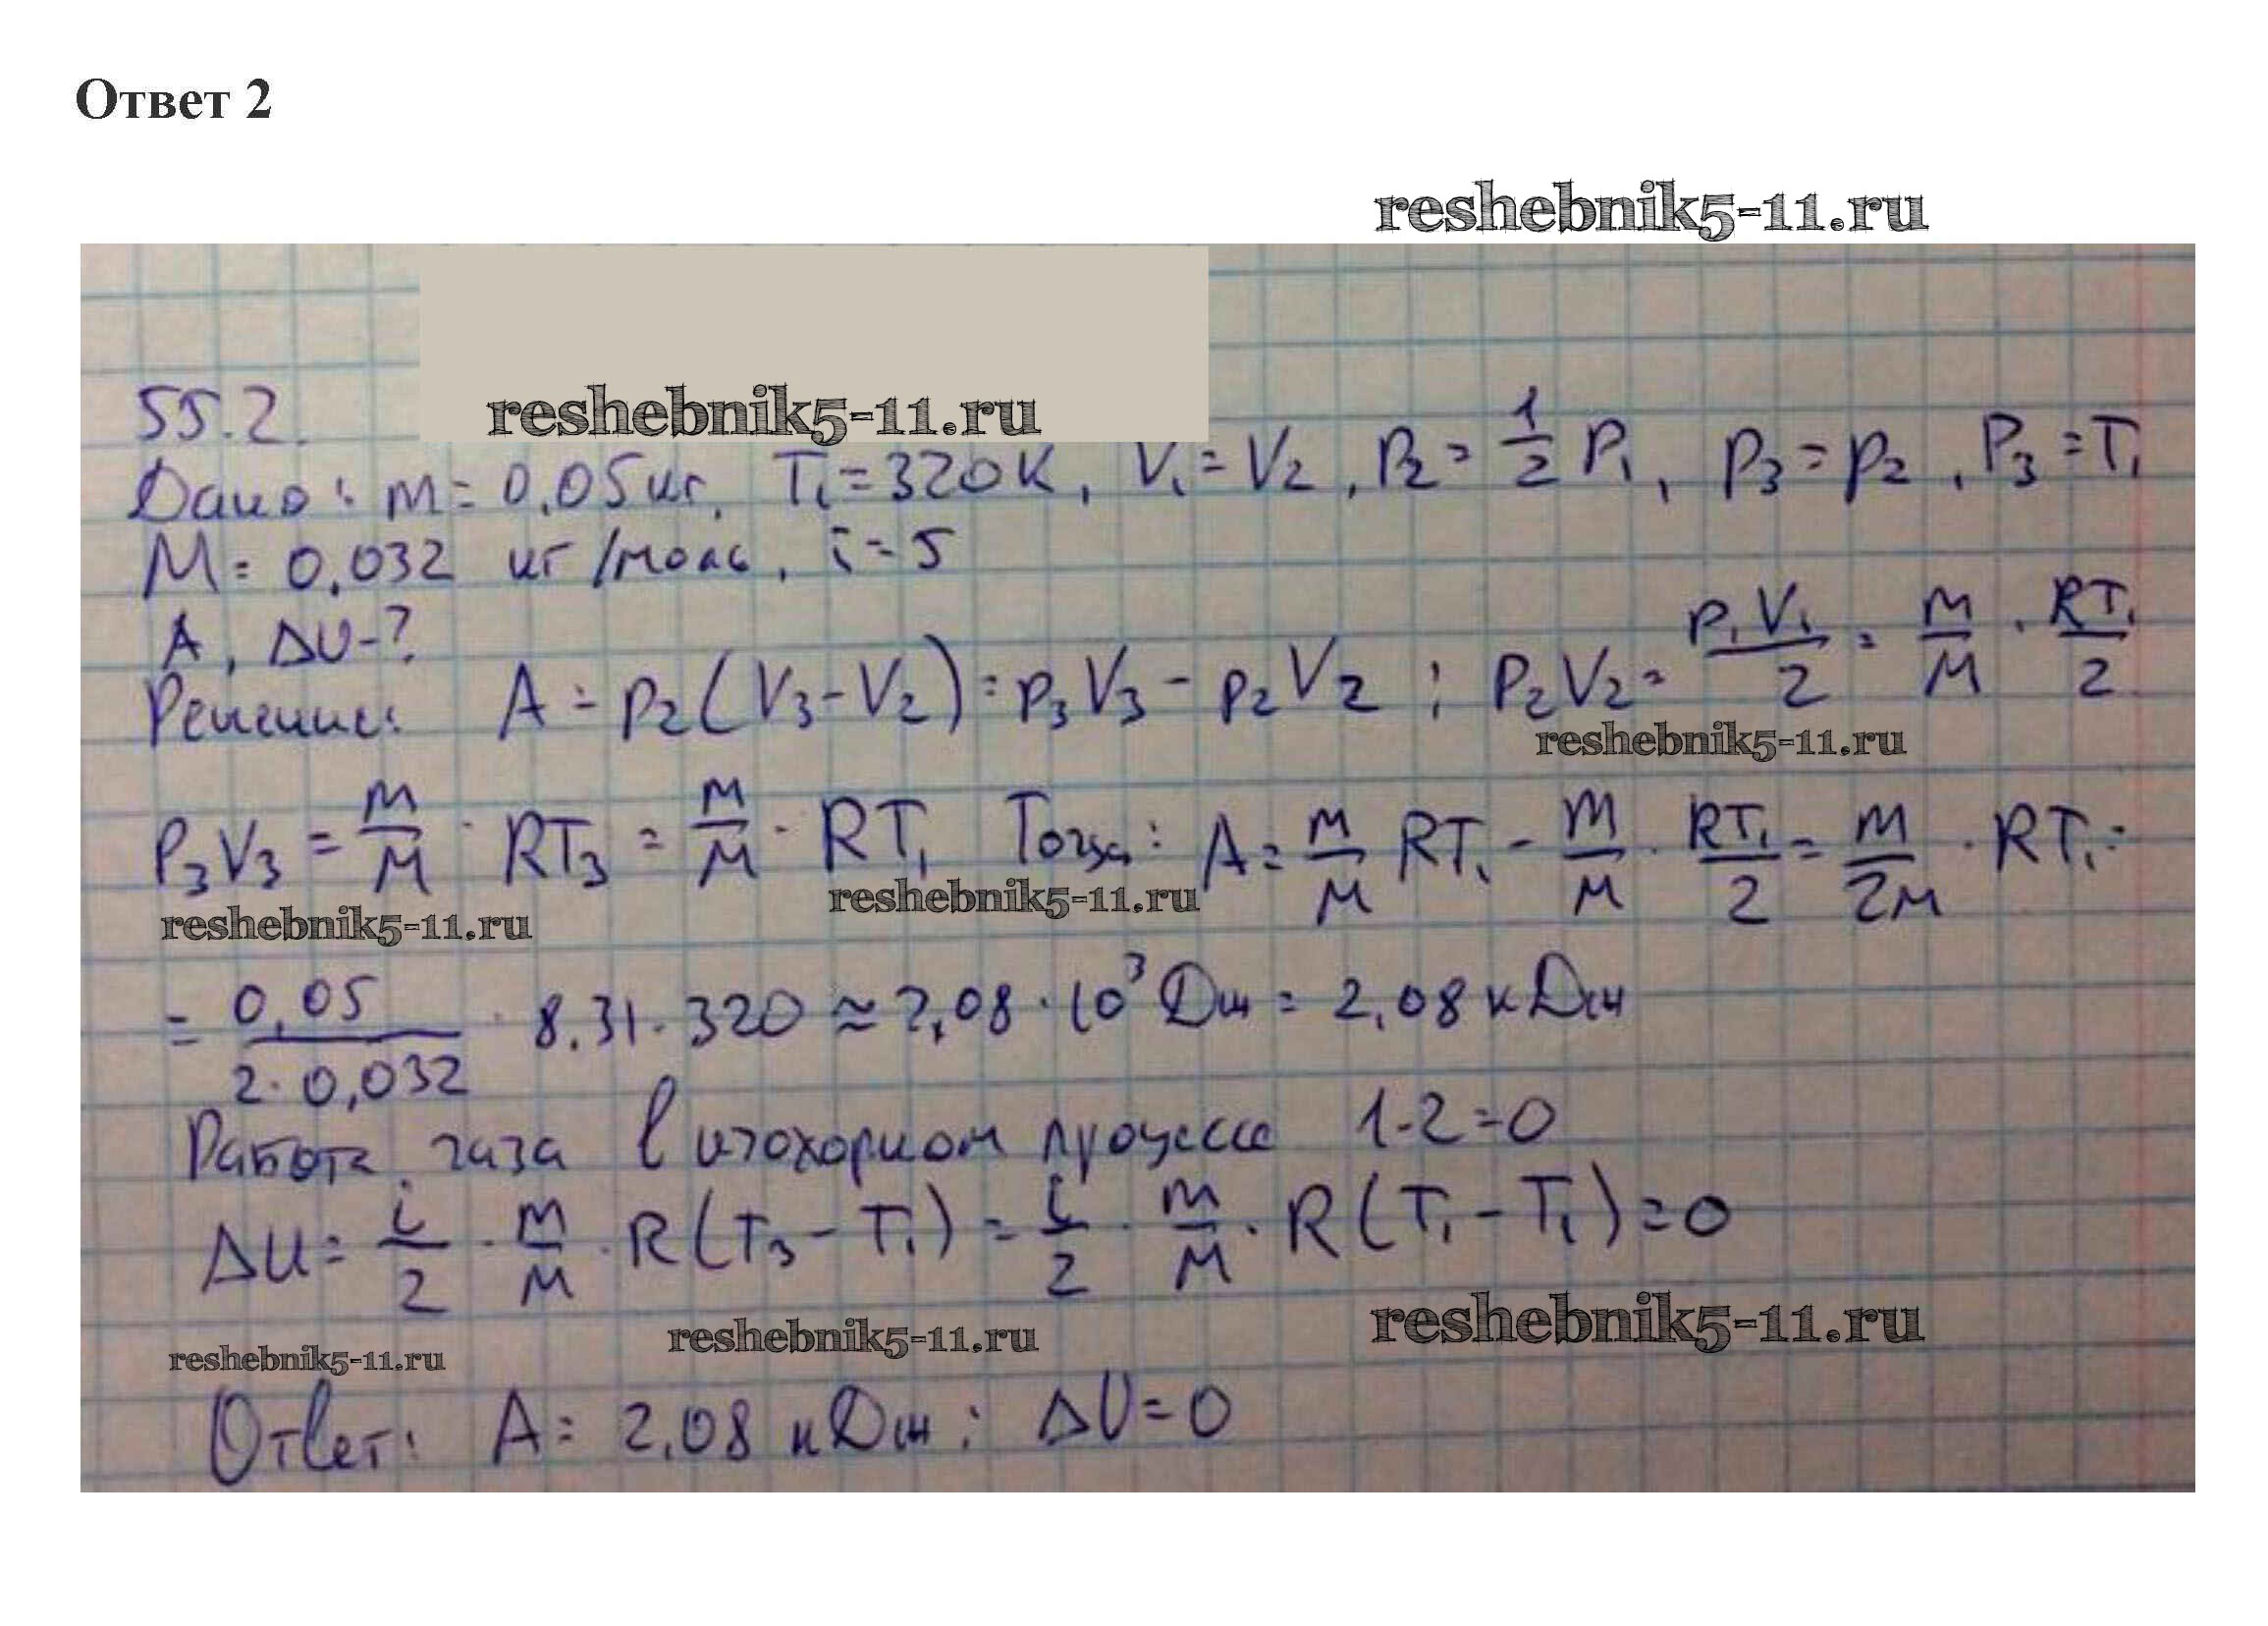 Ответ 2
reshebnik5-11.ru
55.2.
reshebnik5-11.ru
Дано: m = 0,05 кг, T₁ = 320 K, V₁ = V₂, P₂ = 1/2 P₁, P₃ = P₂, P₃ = T₁
M = 0,032 кг/моль, i = 5
A, ΔU - ?
Решение: A = p₂(V₃ - V₂) = p₃V₃ - p₂V₂; P₂V₂ = P₁V₁/2 = m/M · RT₁/2
reshebnik5-11.ru
P₃V₃ = m/M · RT₃ = m/M · RT₁ Тогда: A = m/M RT₁ - m/M · RT₁/2 = m/2M · RT₁ =
reshebnik5-11.ru
reshebnik5-11.ru
= 0,05/2·0,032 · 8,31 · 320 ≈ 2,08 · 10³ Дж = 2,08 кДж
Работа газа в изохорном процессе 1-2 = 0
ΔU = i/2 · m/M · R(T₃ - T₁) = i/2 · m/M · R(T₁ - T₁) = 0
reshebnik5-11.ru
reshebnik5-11.ru
reshebnik5-11.ru
Ответ: A = 2,08 кДж; ΔU = 0